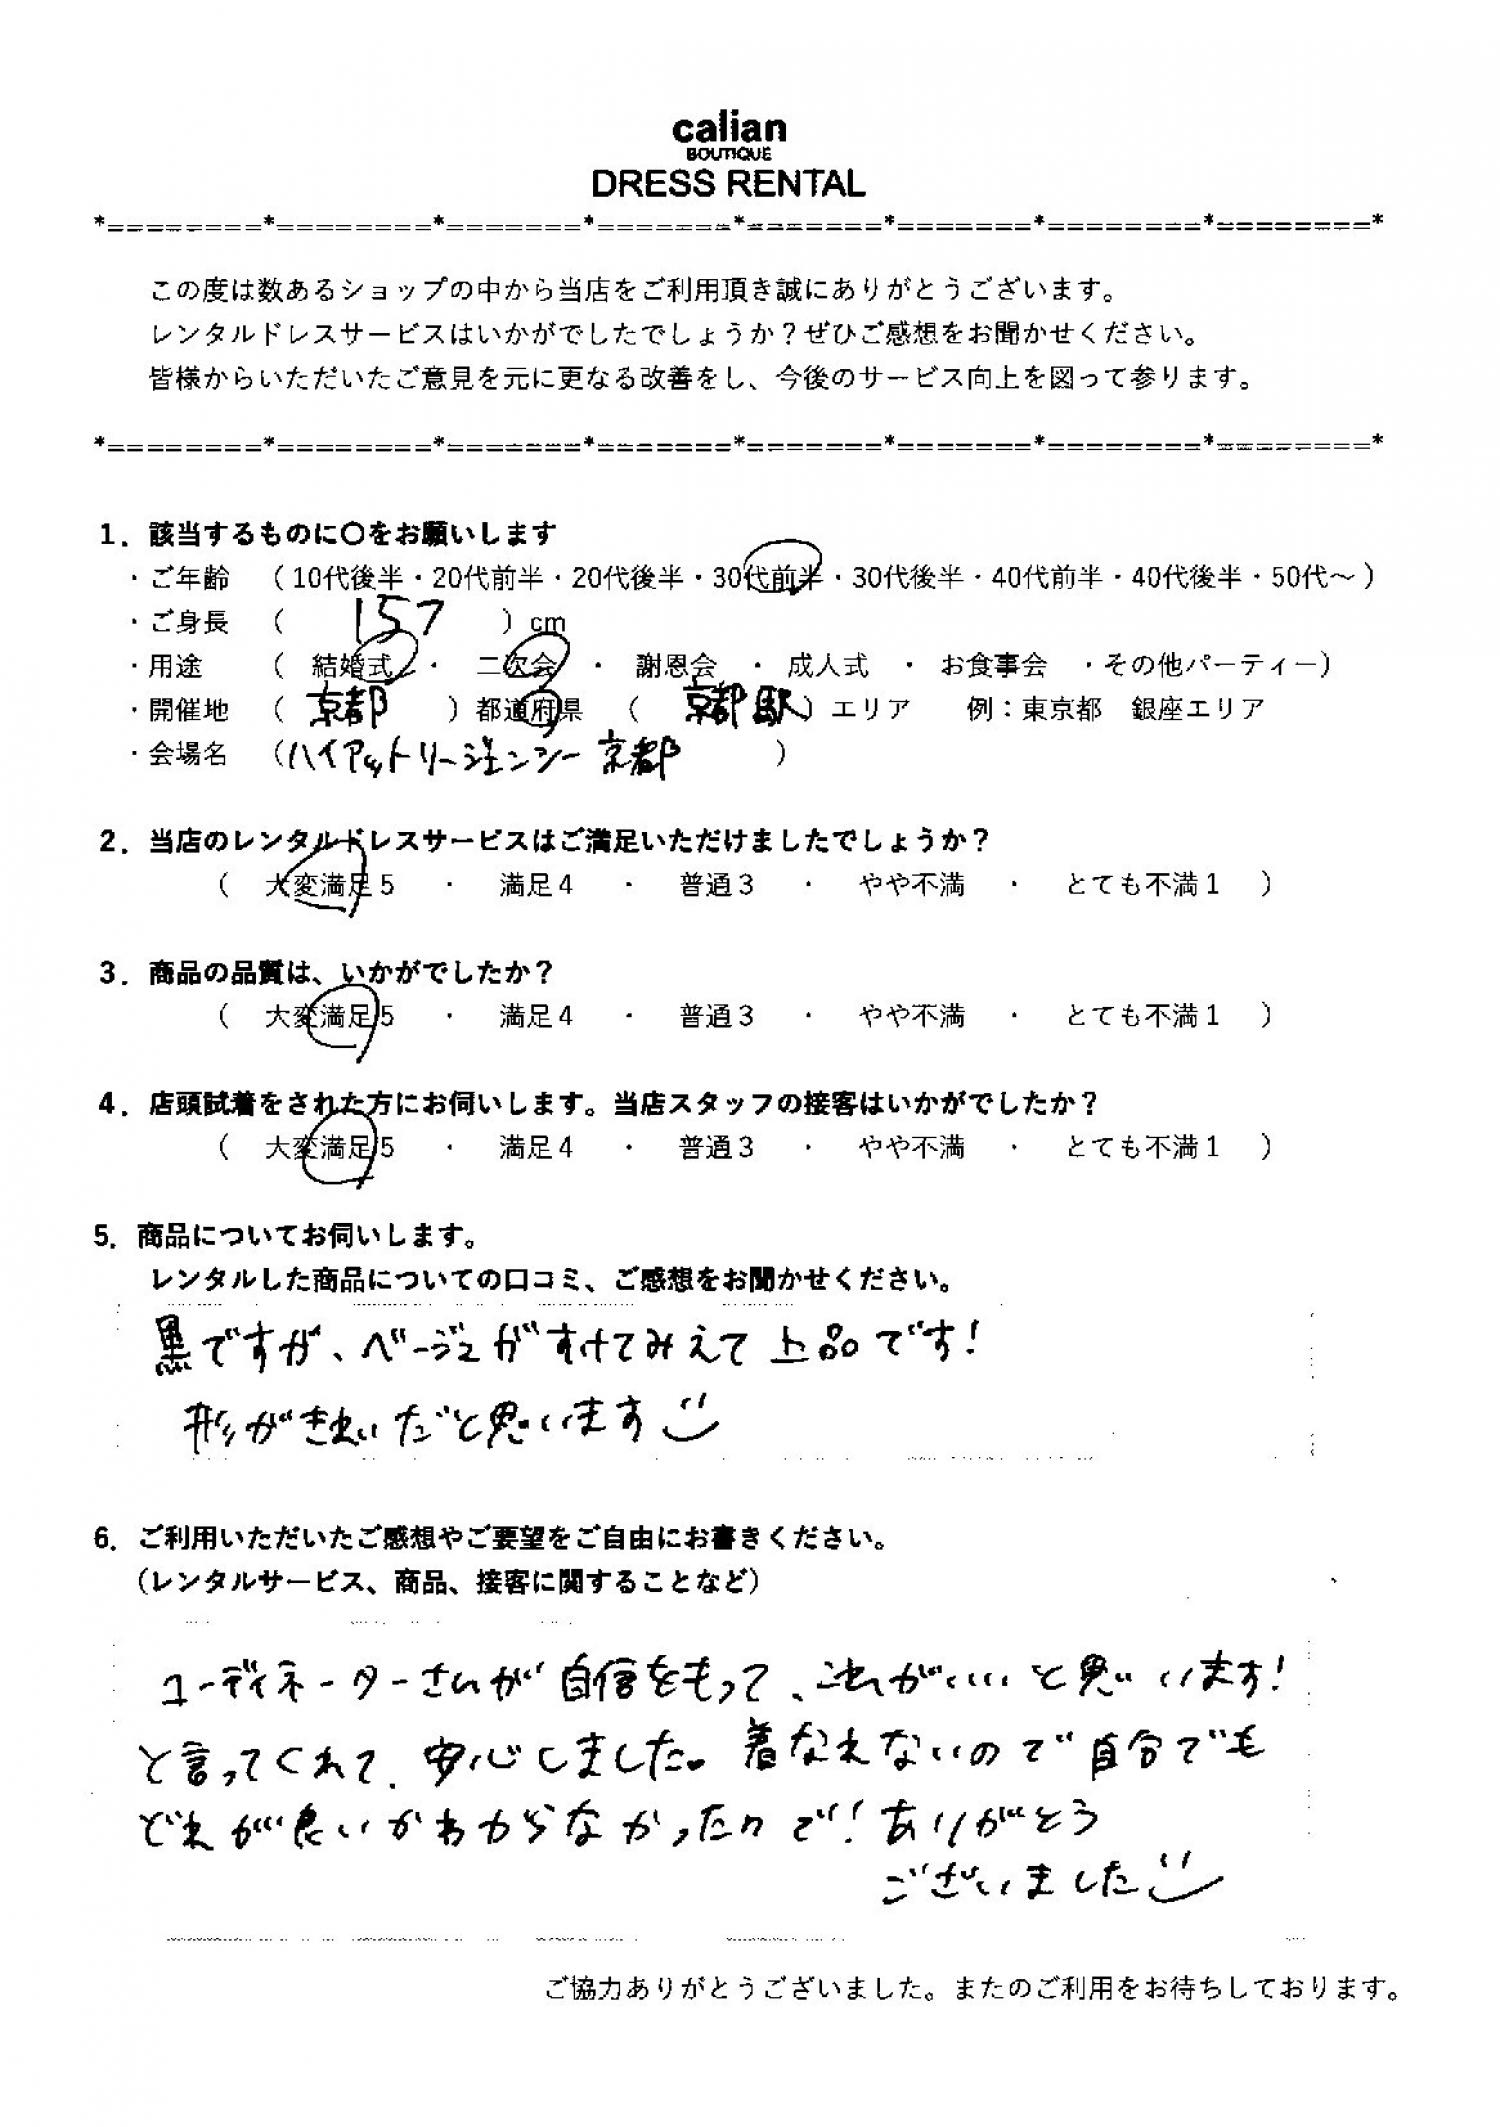 calian
BOUTIQUE
DRESS RENTAL
*========*========*=======*=======*=======*=======*========*========*
この度は数あるショップの中から当店をご利用頂き誠にありがとうございます。
レンタルドレスサービスはいかがでしたでしょうか？ぜひご感想をお聞かせください。
皆様からいただいたご意見を元に更なる改善をし、今後のサービス向上を図って参ります。
*========*========*=======*=======*=======*=======*========*========*
1．該当するものに〇をお願いします
・ご年齢 （10代後半・20代前半・20代後半・30代前半・30代後半・40代前半・40代後半・50代～）
・ご身長 （ 157 ）cm
・用途 （ 結婚式 ・ 二次会 ・ 謝恩会 ・ 成人式 ・ お食事会 ・その他パーティー）
・開催地 （ 京都 ）都道府県 （ 京都駅 ）エリア 例：東京都 銀座エリア
・会場名 （ハイアットリージェンシー京都 ）
2．当店のレンタルドレスサービスはご満足いただけましたでしょうか？
（ 大変満足5 ・ 満足4 ・ 普通3 ・ やや不満 ・ とても不満1 ）
3．商品の品質は、いかがでしたか？
（ 大変満足5 ・ 満足4 ・ 普通3 ・ やや不満 ・ とても不満1 ）
4．店頭試着をされた方にお伺いします。当店スタッフの接客はいかがでしたか？
（ 大変満足5 ・ 満足4 ・ 普通3 ・ やや不満 ・ とても不満1 ）
5．商品についてお伺いします。
レンタルした商品についての口コミ、ご感想をお聞かせください。
黒ですが、ベージュがすけてみえて上品です！
形がきれいだと思います
6．ご利用いただいたご感想やご要望をご自由にお書きください。
（レンタルサービス、商品、接客に関することなど）
コーディネーターさんが自信をもって、これがいいと思います！
と言ってくれて、安心しました。着なれないので自分でも
どれが良いかわからなかったので！ありがとう
ございました
ご協力ありがとうございました。またのご利用をお待ちしております。